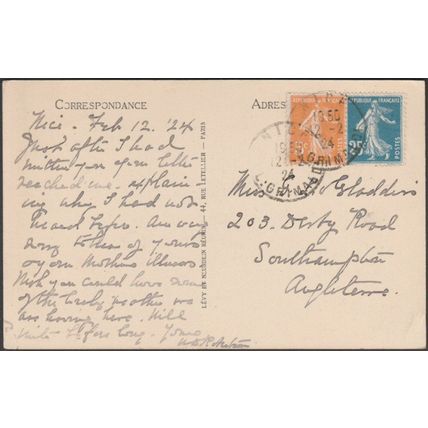 CORRESPONDANCE
ADRES
Nice. Feb 12. '24
Just after I had
written you your letter
reached me. explain
ing why I had not
heard before. Am very
sorry to hear of yours
& your Mothers illness
Wish you could have some
of the lovely weather we
are having here. Will
write before long. Yours
LÉVY ET NEURDEIN RÉUNIS, 44, RUE LETELLIER - PARIS
REPUBLIQUE FRANÇAISE
5c
REPUBLIQUE FRANÇAISE
25c
POSTES
12 -2
24
GRIMALDI
Miss Gladdis
203. Derby Road
Southampton
Angleterre.